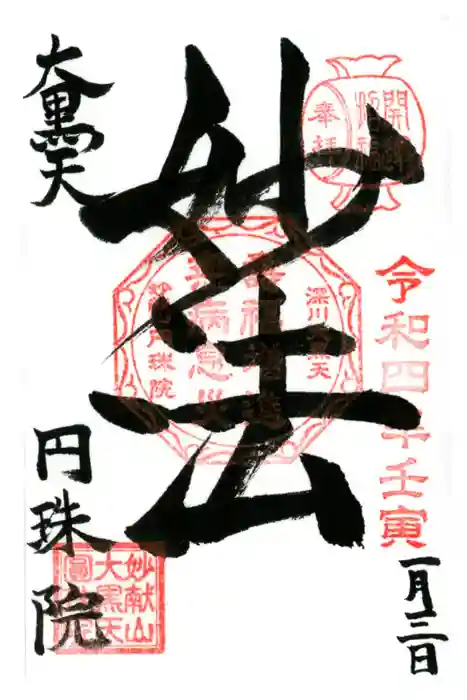 奉拝
開運
招福
令和四年壬寅
一月三日
妙法
深川
大黒天
福
無病息災
円珠院
大黒天
円珠院
妙献山
大黒天
圓珠院